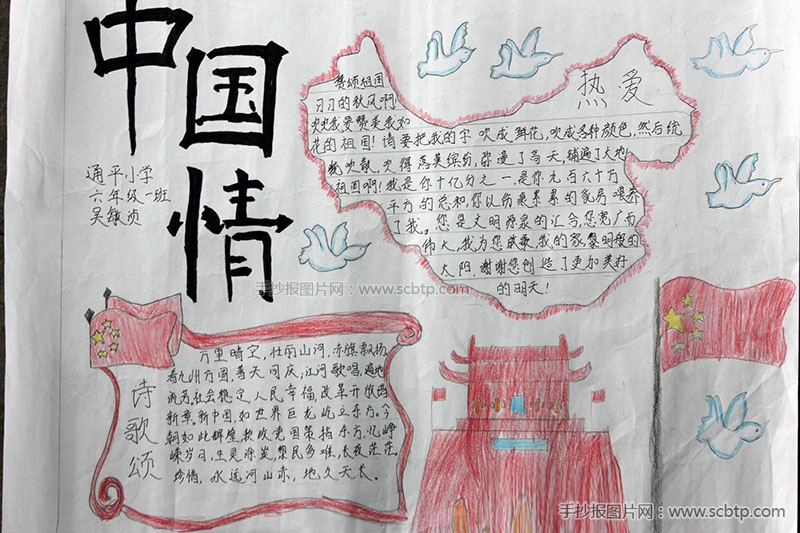 中国情
通平小学
六年级一班
吴敏贞
热爱
赞颂祖国
习习的秋风啊!
吹吹我要赞美我如
花的祖国!请要把我的字吹成鲜花,吹成各种颜色,然后统
统吹散,吹得落英缤纷,弥漫了高天铺遍了大地!
祖国啊!我是你十亿分之一是你九百六十万
平方的总和,你以伤痕累累的家房喂养
了我。您是文明源泉的汇合,您宽广而
伟大,我为您放歌,我的家黎明般的
太阳.谢谢您创造了更加美好
的明天!
手抄报图片网:www.scbtp.com
诗歌颂
万里晴空,壮丽山河,赤旗飘扬
看九州方圆,普天同庆,江河歌唱,遍地
社会稳定,人民幸福,改革开放谱
新章.新中国,如世界巨龙屹立东方.今
朝如此辉煌,款政党国策指东方,忆峥
嵘岁月,生灵涂炭,黎民多难,长夜茫茫.
珍惜,永远河山赤,地久天长.
手抄报图片网:www.scbtp.com